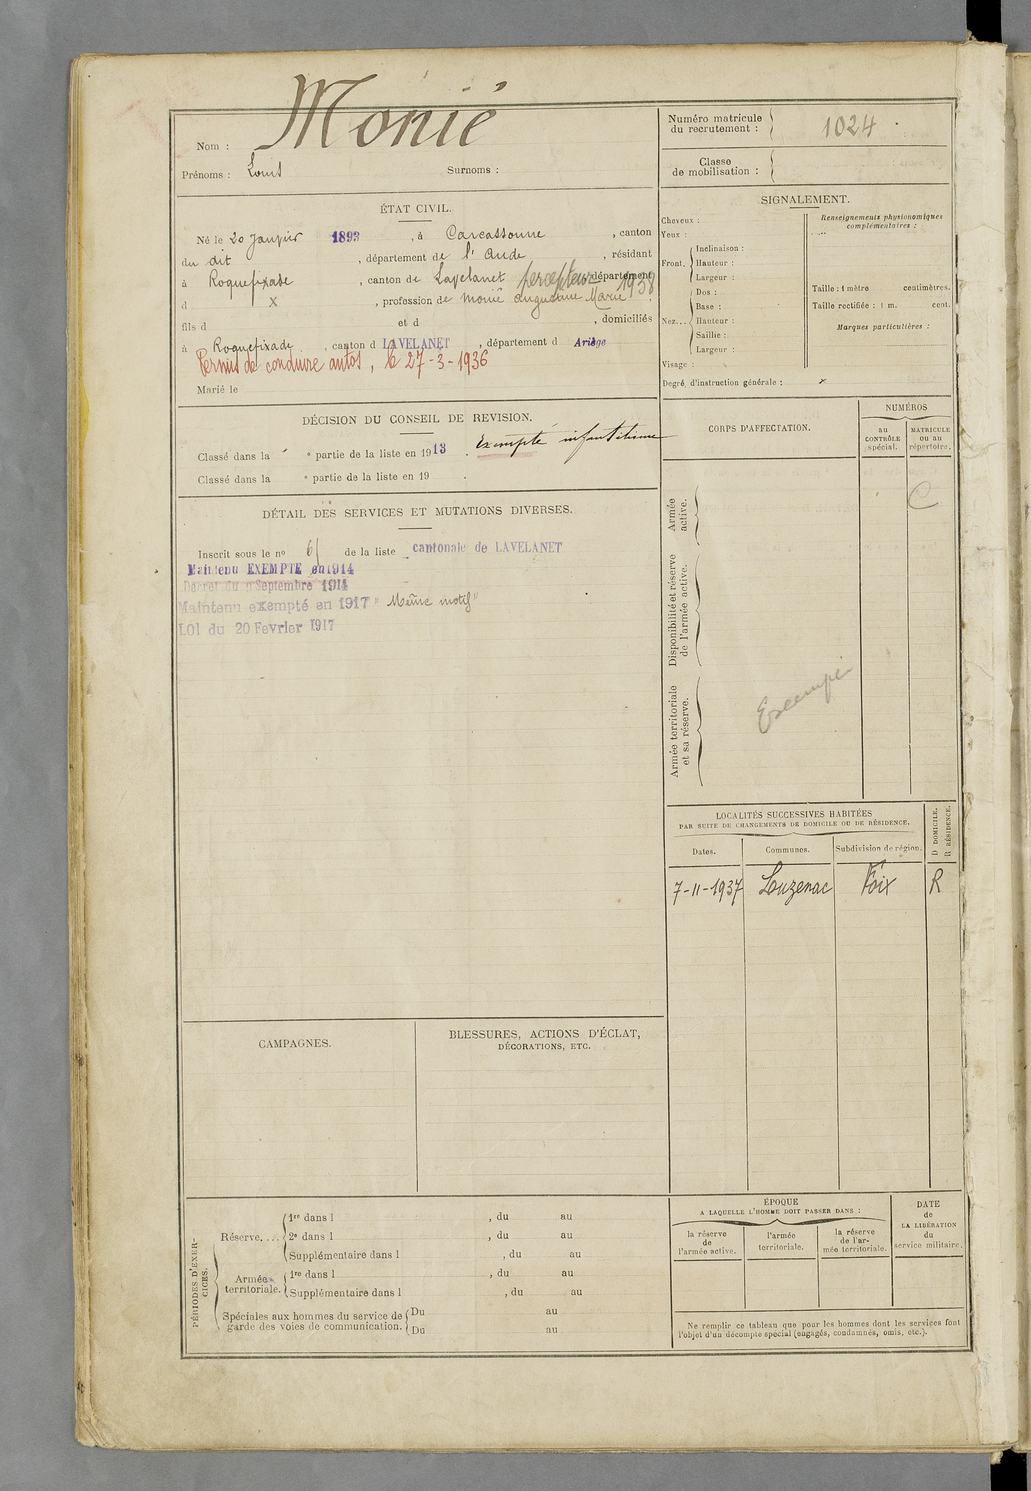 Nom : Monié
Prénoms : Louis Surnoms :
Numéro matricule du recrutement : 1024
Classe de mobilisation :
ÉTAT CIVIL.
Né le 20 Janvier 1893, à Carcassonne, canton
du dit, département de l'Aude, résidant
à Roquefixade, canton de Lavelanet, département
percepteur 1938
d x, profession de Monié Augustine Marie
fils d et d, domiciliés
à Roquefixade, canton d LAVELANET, département d Ariège
Permis de conduire autos, le 27-3-1936
Marié le
SIGNALEMENT.
Cheveux :
Yeux :
Front. Inclinaison :
Hauteur :
Largeur :
Nez... Dos :
Base :
Hauteur :
Saillie :
Largeur :
Visage :
Renseignements physionomiques complémentaires :
Taille : 1 mètre centimètres.
Taille rectifiée : 1 m. cent.
Marques particulières :
Degré d'instruction générale : x
DÉCISION DU CONSEIL DE REVISION.
Classé dans la e partie de la liste en 1913. Exempté infantilisme
Classé dans la e partie de la liste en 19 .
DÉTAIL DES SERVICES ET MUTATIONS DIVERSES.
Inscrit sous le no 61 de la liste cantonale de LAVELANET
Maintenu EXEMPTÉ en 1914
Décret du 9 Septembre 1914
Maintenu exempté en 1917 "Même motif"
LOI du 20 Fevrier 1917
CORPS D'AFFECTATION.
NUMÉROS
au CONTRÔLE spécial.
MATRICULE ou au répertoire.
Armée active.
C
Disponibilité et réserve de l'armée active.
Armée territoriale et sa réserve.
Exempté
LOCALITÉS SUCCESSIVES HABITÉES
PAR SUITE DE CHANGEMENTS DE DOMICILE OU DE RÉSIDENCE.
Dates. Communes. Subdivision de région. D DOMICILE. R RÉSIDENCE.
7-11-1937 Luzenac Foix R
CAMPAGNES.
BLESSURES, ACTIONS D'ÉCLAT,
DÉCORATIONS, ETC.
PÉRIODES D'EXERCICES.
Réserve.... 1re dans l , du au
2e dans l , du au
Supplémentaire dans l , du au
Armée territoriale. 1re dans l , du au
Supplémentaire dans l , du au
Spéciales aux hommes du service de garde des voies de communication. Du au
Du au
ÉPOQUE
A LAQUELLE L'HOMME DOIT PASSER DANS :
la réserve de l'armée active.
l'armée territoriale.
la réserve de l'armée territoriale.
DATE de LA LIBÉRATION du service militaire.
Ne remplir ce tableau que pour les hommes dont les services font
l'objet d'un décompte spécial (engagés, condamnés, omis, etc.).